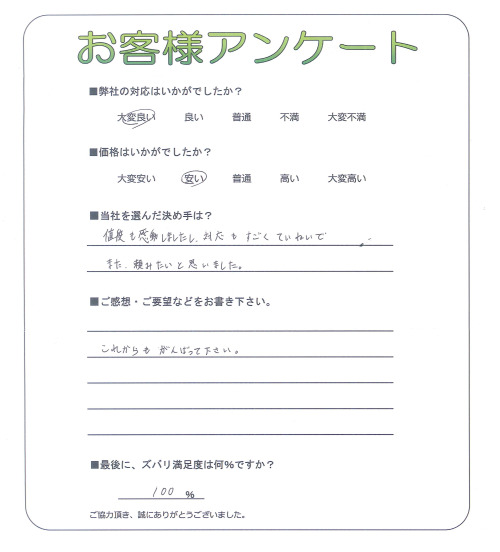 お客様アンケート
■弊社の対応はいかがでしたか？
大変良い 良い 普通 不満 大変不満
■価格はいかがでしたか？
大変安い 安い 普通 高い 大変高い
■当社を選んだ決め手は？
も感動しましたし、対応もすごくていねいで
また、頼みたいと思いました。
■ご感想・ご要望などをお書き下さい。
これからもがんばって下さい。
■最後に、ズバリ満足度は何%ですか？
100 %
ご協力頂き、誠にありがとうございました。